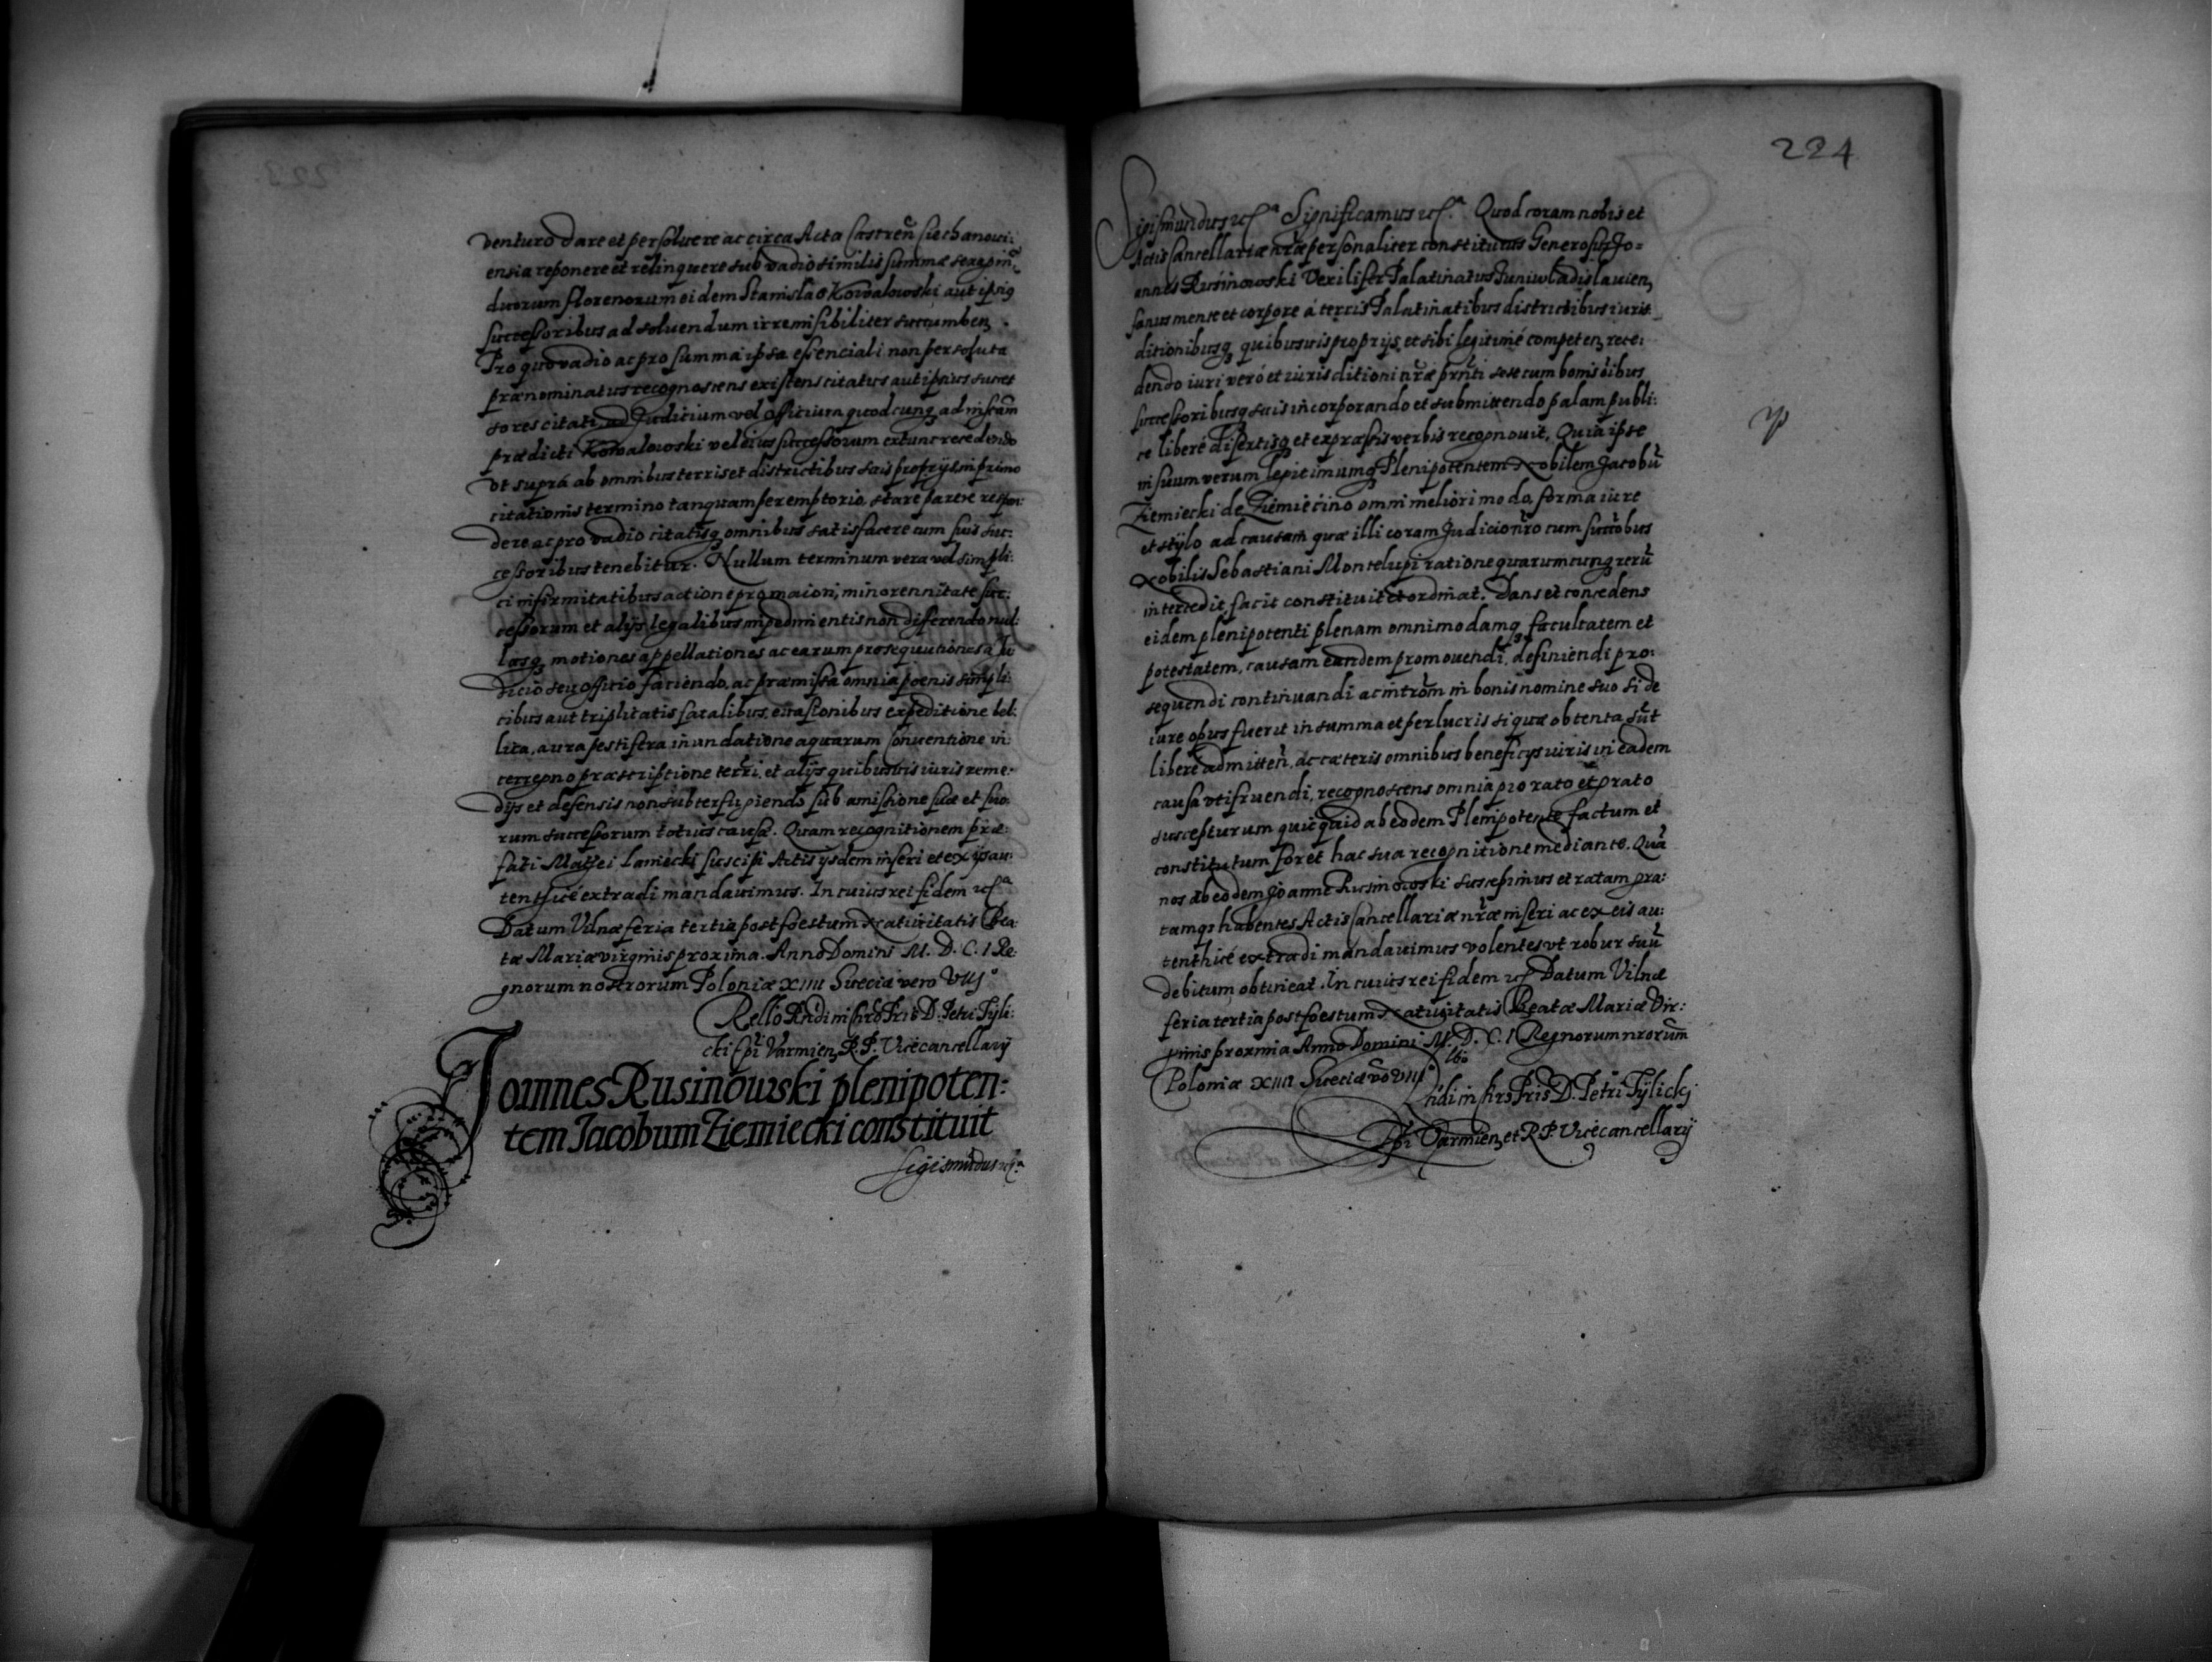 venturo dare et persoluere ac circa Acta Castren̄ Ciechanoui:
ensia reponere et relinquere sub vadio similis summæ sexagin̄:
duorum florenorum eidem Stanislao Kowalowski aut ipsiq
successoribus ad soluendum irremisibiliter succumben.
Pro quo vadio ac pro summa ipsa essenciali non persoluta
prænominatus recognoscens existens citatus aut ipsius succes
sores citati, ad Judicium vel Officium quodcunq ad instām
prædicti Kowalowski vel eius successorum extunc recedendo
vt suprá ab omnibus terris et districtibus suis proprijs, in primo
citationis termino tanquam peremptorio, stare parere respon:
dere ac pro vadio citatisq omnibus satisfacere cum suis suc:
cessoribus tenebitur. Nullum terminum vera vel simpli:
ci infirmitatibus actione pro maiori, minorennitate suc:
cessorum et alijs legalibus impedimentis non differendo nul:
lasq motiones appellationes ac earum prosequutiones á Ju
dicio seu officio faciendo, ac præmissa omnia poenis simpli:
cibus aut triplicatis fatalibus, euasionibus expeditione bel:
lica, aura pestifera inundatione aquarum Conuentione in:
terregno præscriptione terrī, et alijs quibusuis iuris reme:
dijs et defensis non subterfugiendo sub amissione suæ et suo:
rum successorum totius causæ. Quam recognitionem præ:
fati Mathei Laniecki suscipi Actis ijsdem inseri et ex ijs au:
tenthicé extradi mandauimus. In cuius rei fidem etcᵃ
Datum Vilnæ feria tertia post foestum Natiuitatis Bea:
tæ Mariæ virginis proxima. Anno Domini M. D. C. I Re:
gnorum nostrorum Poloniæ XIIII Sueciæ vero VIIJ°
Rellō Rndi in Chrō Pris D. Petri Tyli:
cki Ep̄i Varmien, R. P. Vicecancellarij
Joannes Rusinowski plenipoten:
tem Jacobum Ziemiecki constituit
Sigismūdus etcᵃ
224
Sigismundus etcᵃ Significamus etcᵃ. Quod coram nobis et
Actis Cancellariæ nr̄æ personaliter constitutus Generosus Jo=
annes Rusinowski Vexilifer Palatinatus Juniwladislauien,
sanus mente et corpore á terris Palatinatibus districtibus iuris
ditionibusq quibusuis proprijs, et sibi legitimé competen, rece:
dendo iuri veró et iurisditioni nr̄æ prn̄ti sese cum bonis oībus
successoribusq suis incorporando et submittendo palam publi:
ce liberé disertisq et expræssis verbis recognouit. Quia ipse
in suum verum legitimumq Plenipotentem Nobilem Jacobū
Ziemiecki de Ziemiecino omni meliori modo, forma iure
et stÿlo ad causam quæ illi coram Judicio nr̄o cum succ̄obus
Nobilis Sebastiani Montelupi ratione quarumcunq rerū
intercedit, facit constituit et ordinat. Dans et concedens
eidem plenipotenti plenam omnimodamq facultatem et
potestatem, causam eandem promouendi, definiendi pro:
sequendi continuandi ac intrōm in bonis nomine suo si de
iure opus fuerit in summa et perlucris si quæ obtenta sūt
liberé admitten̄, ac cæteris omnibus beneficijs iuris in eadem
causa vtifruendi, recognoscens omnia pro rato et grato
suscepturum quicquid ab eodem Plenipotente factum et
constitutum foret hac sua recognitione mediante. Quā
nos ab eodem Joanne Rusinowski suscepimus et ratam gra:
tamqs habentes Actis Cancellariæ nr̄æ inseri ac ex eis au:
tenthicé extradi mandauimus volentes vt robur suū
debitum obtineat. In cuius rei fidem etc Datum Vilnæ
feria tertia post foestum Natiuitatis Beatæ Mariæ Vir:
ginis proxima Anno Domini M. D. C. I Regnorum nrorum̄
Poloniæ XIIII Sueciæ vō VIII°
Rllō
Rn̄di in Chrs Pris D. Petri Tÿlickj
Ep̄i Varmien, et R. P. Vicecancellarij